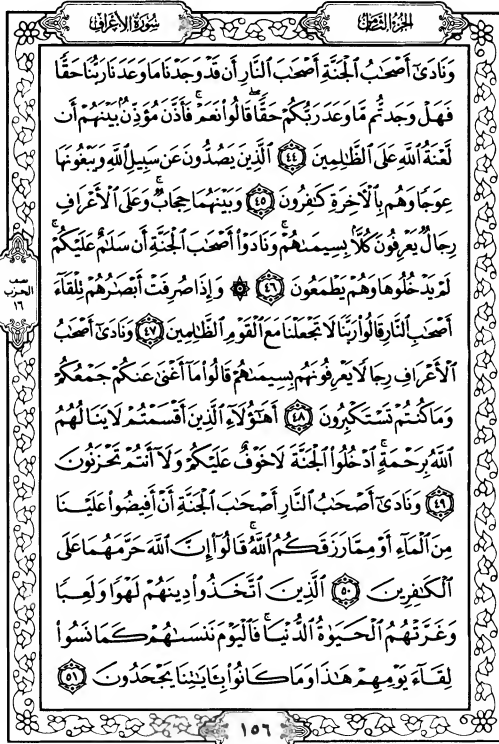 سُورَةُ الْأَعْرَافِ
الجُزْءُ الثَّامِنُ
وَنَادَىٰٓ أَصْحَٰبُ ٱلْجَنَّةِ أَصْحَٰبَ ٱلنَّارِ أَن قَدْ وَجَدْنَا مَا وَعَدَنَا رَبُّنَا حَقًّا
فَهَلْ وَجَدتُّم مَّا وَعَدَ رَبُّكُمْ حَقًّا ۖ قَالُوا۟ نَعَمْ ۚ فَأَذَّنَ مُؤَذِّنٌۢ بَيْنَهُمْ أَن
لَّعْنَةُ ٱللَّهِ عَلَى ٱلظَّٰلِمِينَ ٤٤ ٱلَّذِينَ يَصُدُّونَ عَن سَبِيلِ ٱللَّهِ وَيَبْغُونَهَا
عِوَجًا وَهُم بِٱلْءَاخِرَةِ كَٰفِرُونَ ٤٥ وَبَيْنَهُمَا حِجَابٌ ۚ وَعَلَى ٱلْأَعْرَافِ
رِجَالٌ يَعْرِفُونَ كُلًّۢا بِسِيمَىٰهُمْ ۚ وَنَادَوْا۟ أَصْحَٰبَ ٱلْجَنَّةِ أَن سَلَٰمٌ عَلَيْكُمْ ۚ
لَمْ يَدْخُلُوهَا وَهُمْ يَطْمَعُونَ ٤٦ ۞ وَإِذَا صُرِفَتْ أَبْصَٰرُهُمْ تِلْقَآءَ
أَصْحَٰبِ ٱلنَّارِ قَالُوا۟ رَبَّنَا لَا تَجْعَلْنَا مَعَ ٱلْقَوْمِ ٱلظَّٰلِمِينَ ٤٧ وَنَادَىٰٓ أَصْحَٰبُ
ٱلْأَعْرَافِ رِجَالًا يَعْرِفُونَهُم بِسِيمَىٰهُمْ قَالُوا۟ مَآ أَغْنَىٰ عَنكُمْ جَمْعُكُمْ
وَمَا كُنتُمْ تَسْتَكْبِرُونَ ٤٨ أَهَٰٓؤُلَآءِ ٱلَّذِينَ أَقْسَمْتُمْ لَا يَنَالُهُمُ
ٱللَّهُ بِرَحْمَةٍ ۚ ٱدْخُلُوا۟ ٱلْجَنَّةَ لَا خَوْفٌ عَلَيْكُمْ وَلَآ أَنتُمْ تَحْزَنُونَ
٤٩ وَنَادَىٰٓ أَصْحَٰبُ ٱلنَّارِ أَصْحَٰبَ ٱلْجَنَّةِ أَنْ أَفِيضُوا۟ عَلَيْنَا
مِنَ ٱلْمَآءِ أَوْ مِمَّا رَزَقَكُمُ ٱللَّهُ ۚ قَالُوٓا۟ إِنَّ ٱللَّهَ حَرَّمَهُمَا عَلَى
ٱلْكَٰفِرِينَ ٥٠ ٱلَّذِينَ ٱتَّخَذُوا۟ دِينَهُمْ لَهْوًا وَلَعِبًا
وَغَرَّتْهُمُ ٱلْحَيَوٰةُ ٱلدُّنْيَا ۚ فَٱلْيَوْمَ نَنسَىٰهُمْ كَمَا نَسُوا۟
لِقَآءَ يَوْمِهِمْ هَٰذَا وَمَا كَانُوا۟ بِـَٔايَٰتِنَا يَجْحَدُونَ ٥١
نصف
الحزب
١٦
١٥٦